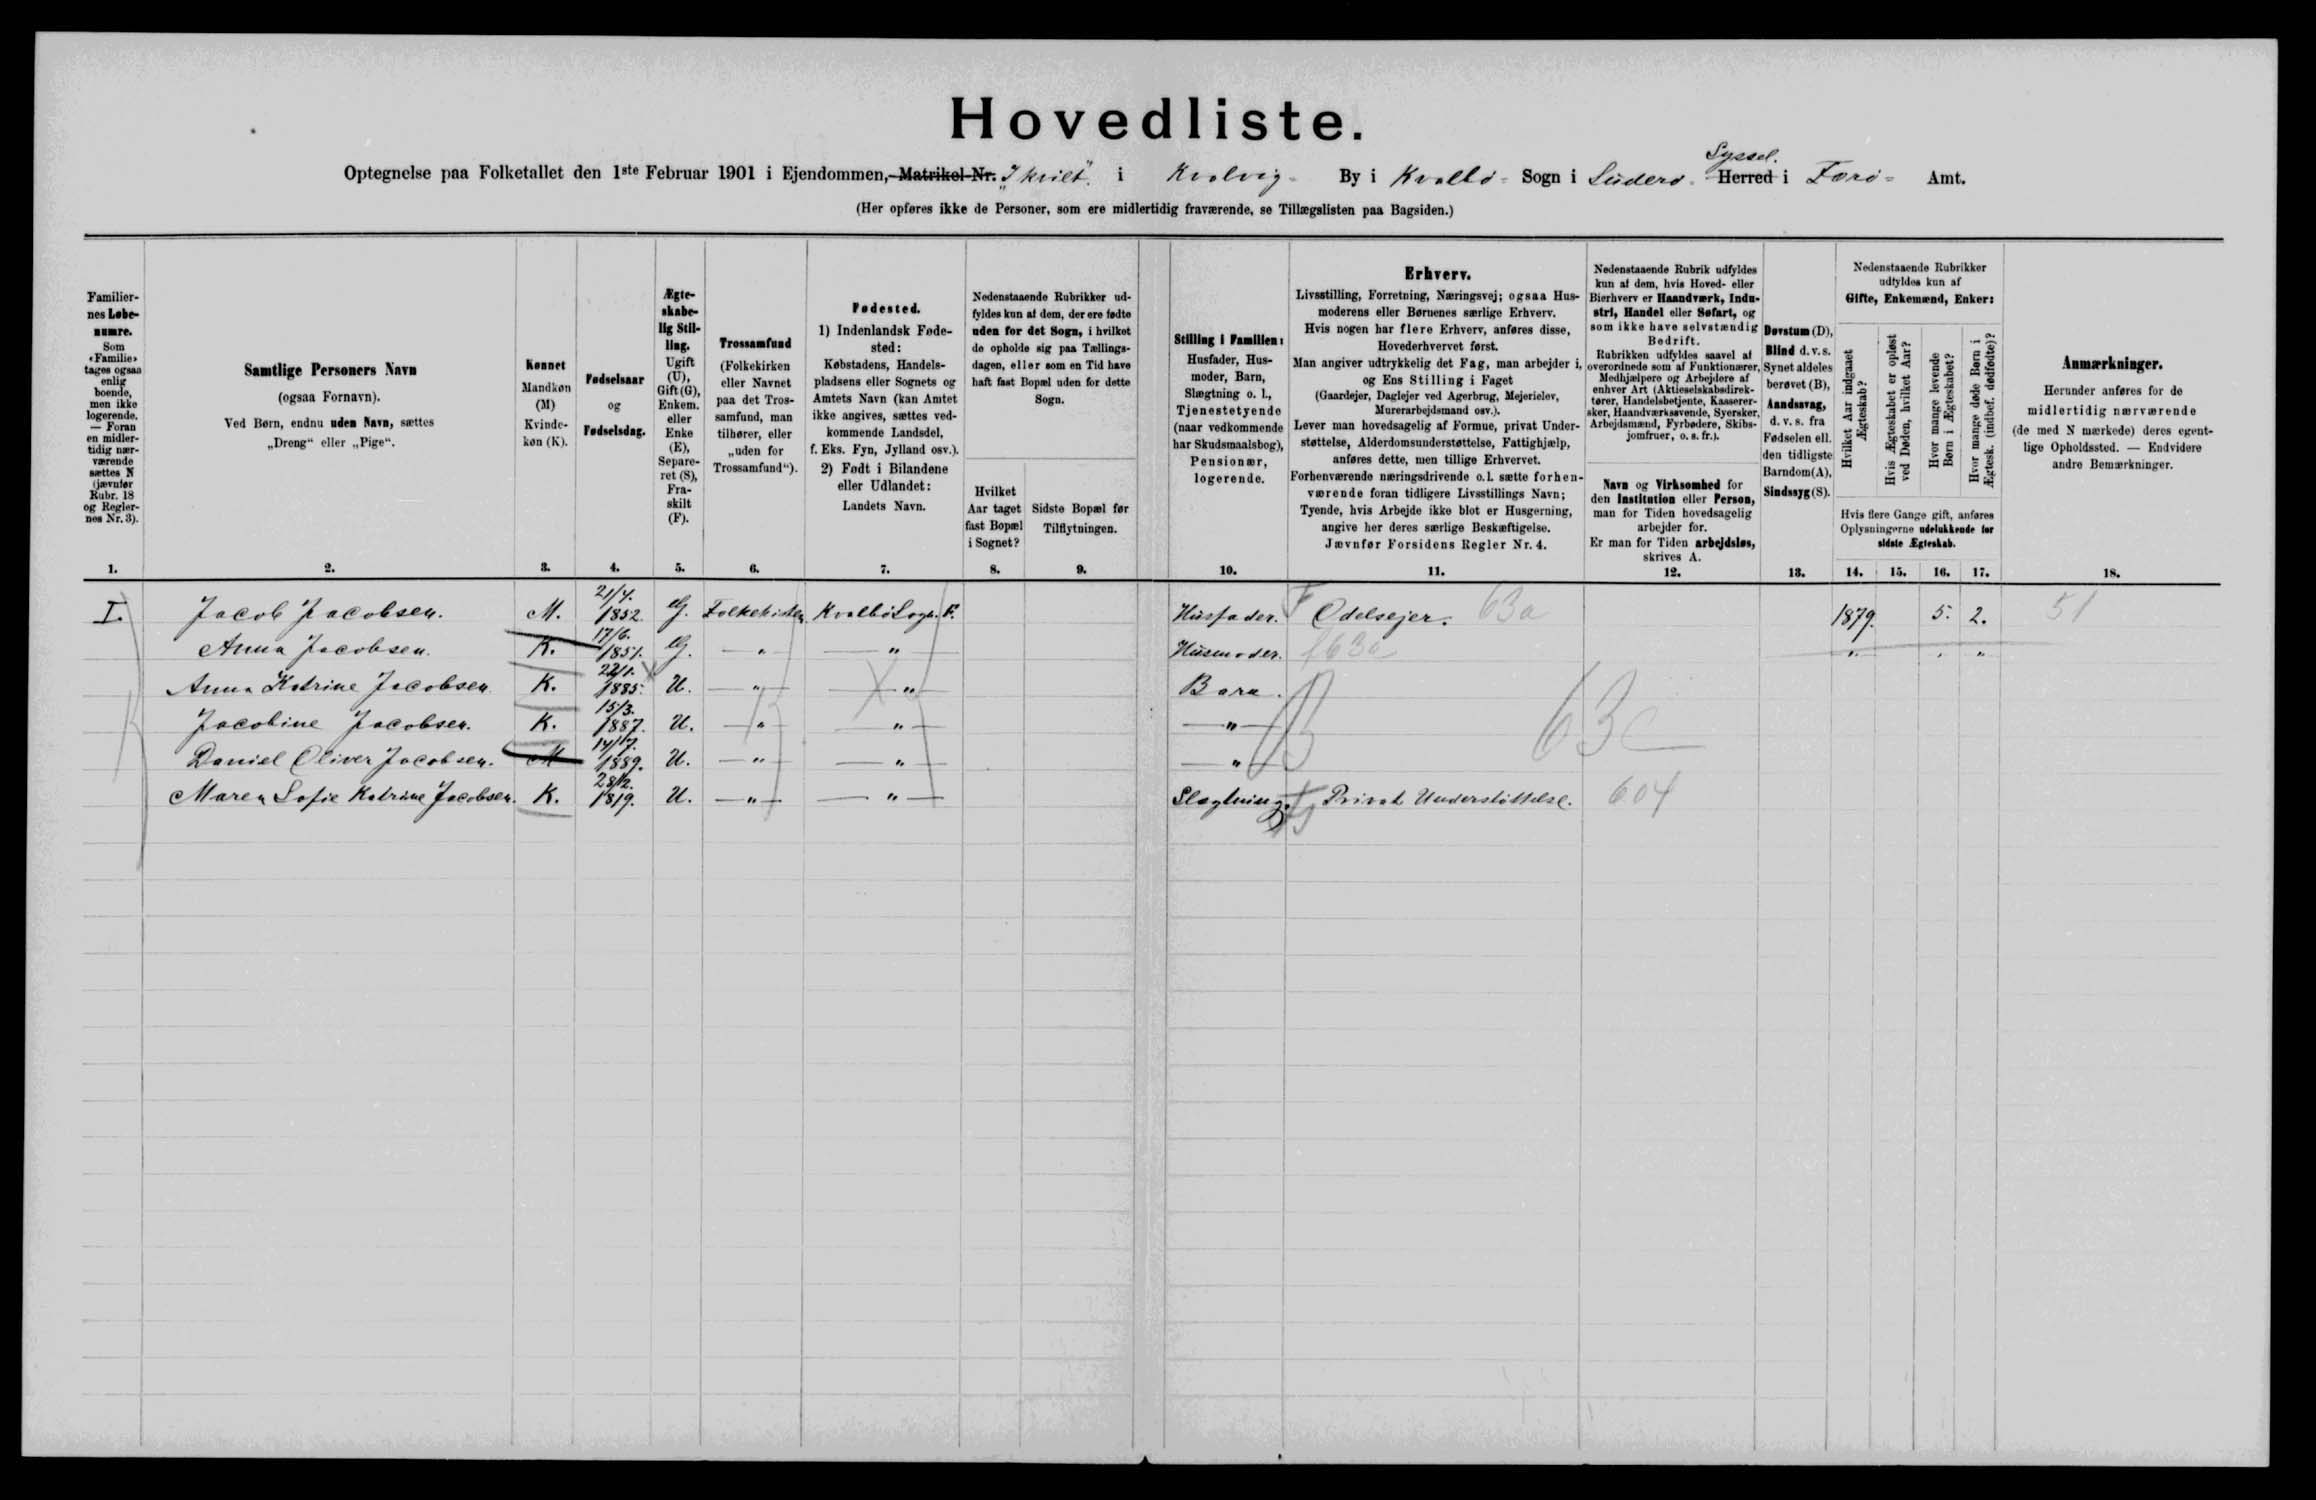 Hovedliste.
Syssel.
Optegnelse paa Folketallet den 1ste Februar 1901 i Ejendommen, Matrikel-Nr. "I kvilt". i Kvalvig- By i Kvalbø- Sogn i Suderø- Herred i Færø- Amt.
(Her opføres ikke de Personer, som ere midlertidig fraværende, se Tillægslisten paa Bagsiden.)
Familier-
nes Løbe-
numre.
Som
«Familie»
tages ogsaa
enlig
boende,
men ikke
logerende.
— Foran
en midler-
tidig nær-
værende
sættes N
(jævnfør
Rubr. 18
og Regler-
nes Nr. 3).
1.
Samtlige Personers Navn
(ogsaa Fornavn).
Ved Børn, endnu uden Navn, sættes
„Dreng“ eller „Pige“.
2.
Kønnet
Mandkøn
(M)
Kvinde-
køn (K).
3.
Fødselsaar
og
Fødselsdag.
4.
Ægte-
skabe-
lig Stil-
ling.
Ugift
(U),
Gift (G),
Enkem.
eller
Enke
(E),
Separe-
ret (S),
Fra-
skilt
(F).
5.
Trossamfund
(Folkekirken
eller Navnet
paa det Tros-
samfund, man
tilhører, eller
„uden for
Trossamfund“).
6.
Fødested.
1) Indenlandsk Føde-
sted:
Købstadens, Handels-
pladsens eller Sognets og
Amtets Navn (kan Amtet
ikke angives, sættes ved-
kommende Landsdel,
f. Eks. Fyn, Jylland osv.).
2) Født i Bilandene
eller Udlandet:
Landets Navn.
7.
Nedenstaaende Rubrikker ud-
fyldes kun af dem, der ere fødte
uden for det Sogn, i hvilket
de opholde sig paa Tællings-
dagen, eller som en Tid have
haft fast Bopæl uden for dette
Sogn.
Hvilket
Aar taget
fast Bopæl
i Sognet?
8.
Sidste Bopæl før
Tilflytningen.
9.
Stilling i Familien:
Husfader, Hus-
moder, Barn,
Slægtning o. l.,
Tjenestetyende
(naar vedkommende
har Skudsmaalsbog),
Pensionær,
logerende.
10.
Erhverv.
Livsstilling, Forretning, Næringsvej; ogsaa Hus-
moderens eller Børnenes særlige Erhverv.
Hvis nogen har flere Erhverv, anføres disse,
Hovederhvervet først.
Man angiver udtrykkelig det Fag, man arbejder i,
og Ens Stilling i Faget
(Gaardejer, Daglejer ved Agerbrug, Mejerielev,
Murerarbejdsmand osv.).
Lever man hovedsagelig af Formue, privat Under-
støttelse, Alderdomsunderstøttelse, Fattighjælp,
anføres dette, men tillige Erhvervet.
Forhenværende næringsdrivende o. l. sætte forhen-
værende foran tidligere Livsstillings Navn;
Tyende, hvis Arbejde ikke blot er Husgerning,
angive her deres særlige Beskæftigelse.
Jævnfør Forsidens Regler Nr. 4.
11.
Nedenstaaende Rubrik udfyldes
kun af dem, hvis Hoved- eller
Bierhverv er Haandværk, Indu-
stri, Handel eller Søfart, og
som ikke have selvstændig
Bedrift.
Rubrikken udfyldes saavel af
overordnede som af Funktionærer,
Medhjælpere og Arbejdere af
enhver Art (Aktieselskabsdirek-
tører, Handelsbetjente, Kasserer-
sker, Haandværkssvende, Syersker,
Arbejdsmænd, Fyrbødere, Skibs-
jomfruer, o. s. fr.).
Navn og Virksomhed for
den Institution eller Person,
man for Tiden hovedsagelig
arbejder for.
Er man for Tiden arbejdsløs,
skrives A.
12.
Døvstum (D),
Blind d. v. s.
Synet aldeles
berøvet (B),
Aandssvag,
d. v. s. fra
Fødselen ell.
den tidligste
Barndom (A),
Sindssyg (S).
13.
Nedenstaaende Rubrikker
udfyldes kun af
Gifte, Enkemænd, Enker:
Hvilket Aar indgaaet
Ægteskab?
Hvis Ægteskabet er opløst
ved Døden, hvilket Aar?
Hvor mange levende
Børn i Ægteskabet?
Hvor mange døde Børn i
Ægtesk. (indbef. dødfødte)?
Hvis flere Gange gift, anføres
Oplysningerne udelukkende for
sidste Ægteskab.
14. 15. 16. 17.
Anmærkninger.
Herunder anføres for de
midlertidig nærværende
(de med N mærkede) deres egent-
lige Opholdssted. — Endvidere
andre Bemærkninger.
18.
I. Jacob Jacobsen. M. 21/4. 1852. G. Folkekirken Kvalbø Sogn. F. Husfader. F Odelsejer. 63a 1879. 5. 2. 51
Anna Jacobsen. K. 17/6. 1851. G. " " Husmoder. f63a " " "
Anna Katrine Jacobsen. K. 1885. U. " " Barn.
Jacobine Jacobsen. K. 15/3. 1887. U. " " " B 63c
Daniel Oliver Jacobsen. M 14/7. 1889. U. " " "
Maren Sofie Katrine Jacobsen. K. 1819. U. " " Slægtning. Privat Understøttelse. 604